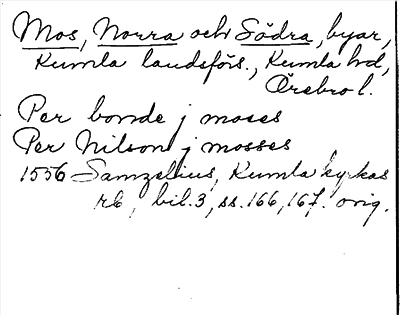 Mos, Norra och Södra, byar,
Kumla landsförs., Kumla hd,
Örebro l.
Per bonde j moses
Per Nilson j mosses
1556 Samzelius, Kumla kyrkas
rb, bil. 3, ss. 166, 167. orig.